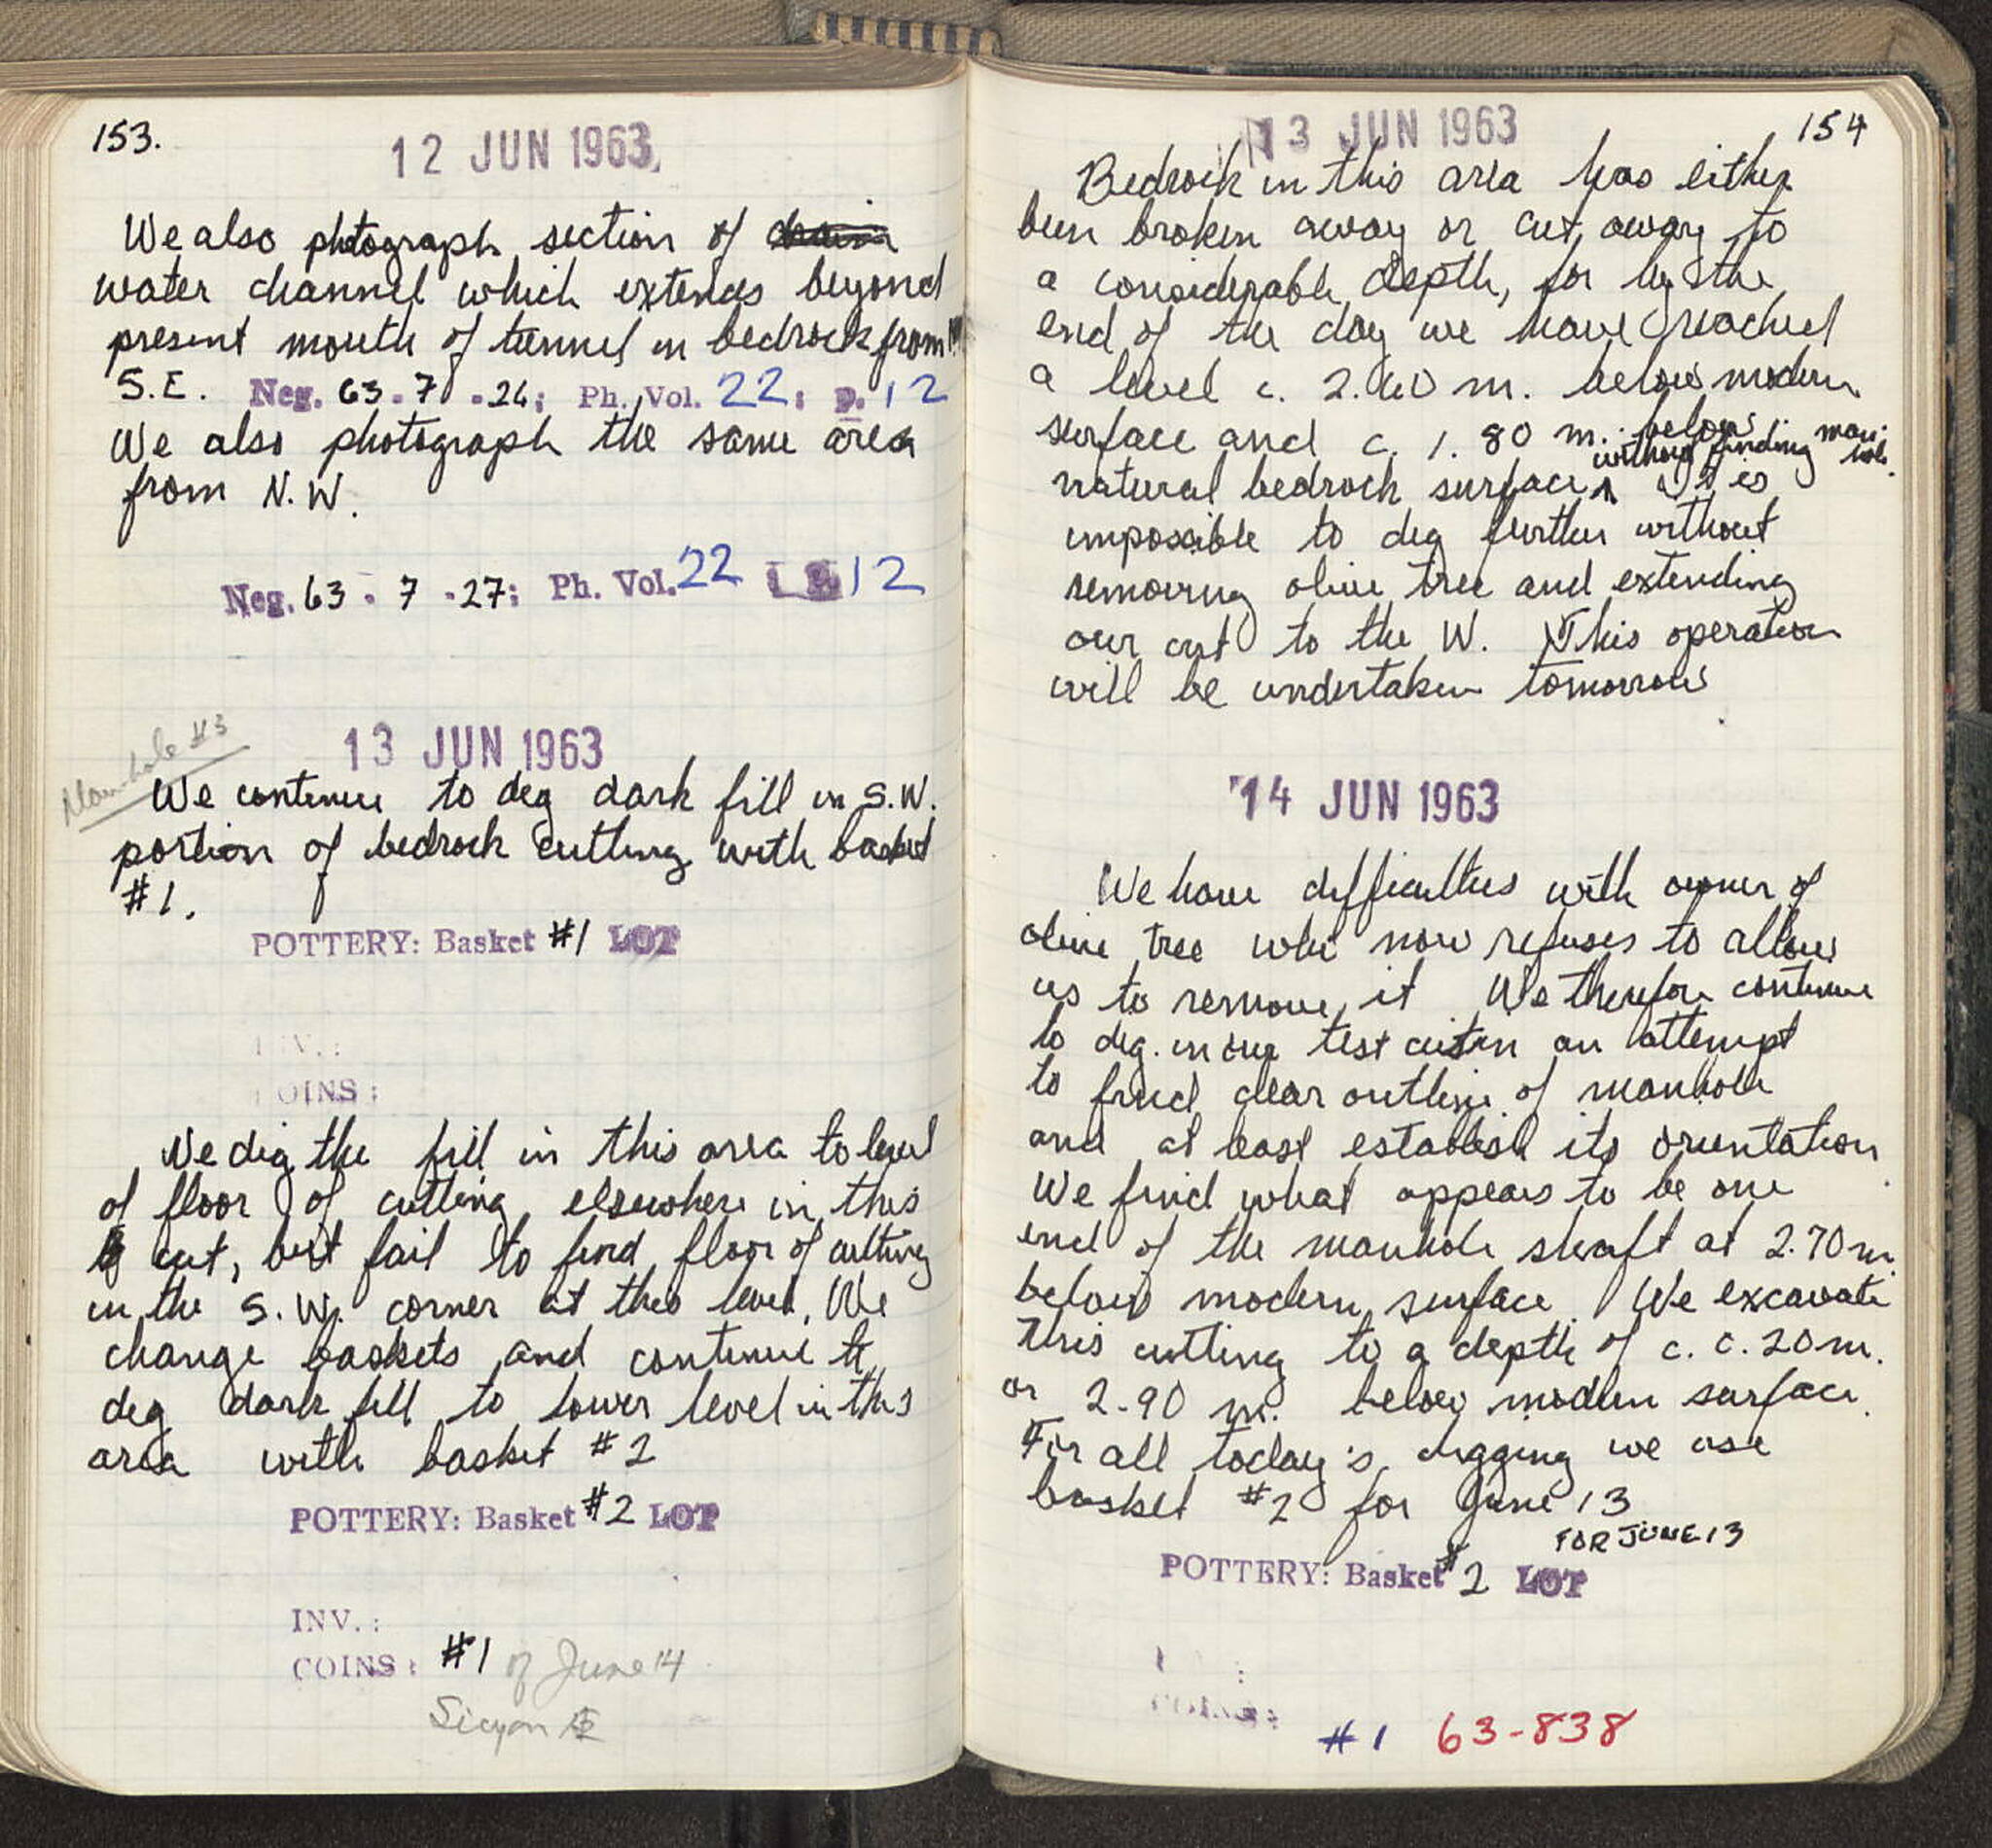 153.
12 JUN 1963
We also photograph section of
water channel which extends beyond
present mouth of tunnel in bedrock from
S.E. Neg. 63 - 7 - 26; Ph. Vol. 22; p. 12
We also photograph the same area
from N.W.
Neg. 63 - 7 - 27; Ph. Vol. 22 12
Manhole #3
13 JUN 1963
We continue to dig dark fill in S.W.
portion of bedrock cutting with basket
#1.
POTTERY: Basket #1 LOT
INV. :
COINS :
We dig the fill in this area to level
of floor of cutting elsewhere in this
cut, but fail to find floor of cutting
in the S.W. corner at this level. We
change baskets and continue to
dig dark fill to lower level in this
area with basket #2
POTTERY: Basket #2 LOT
INV. :
COINS : #1 of June 14
Sicyon Æ
13 JUN 1963
154
Bedrock in this area has either
been broken away or cut away to
a considerable depth, for by the
end of the day we have reached
a level c. 2.60 m. below modern
surface and c. 1.80 m. below
natural bedrock surface without finding manhole. It is
impossible to dig further without
removing olive tree and extending
our cut to the W. This operation
will be undertaken tomorrow
14 JUN 1963
We have difficulties with owner of
olive tree who now refuses to allow
us to remove it We therefore continue
to dig in our test cut in an attempt
to find clear outline of manhole
and at least establish its orientation
We find what appears to be one
end of the manhole shaft at 2.70 m.
below modern surface We excavate
this cutting to a depth of c. 0.20 m.
or 2.90 m. below modern surface.
For all today's digging we use
basket #2 for June 13
FOR JUNE 13
POTTERY: Basket #2 LOT
#1 63-838